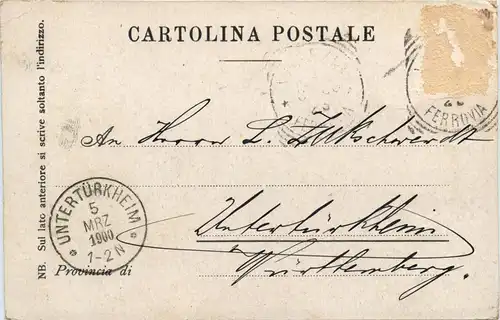 CARTOLINA POSTALE
NB. Sul lato anteriore si scrive soltanto l'indirizzo.
FERROVIA
An Herrn L.
Untertürkheim
Württemberg.
UNTERTÜRKHEIM
5
MRZ
1900
1-2N
Provincia di